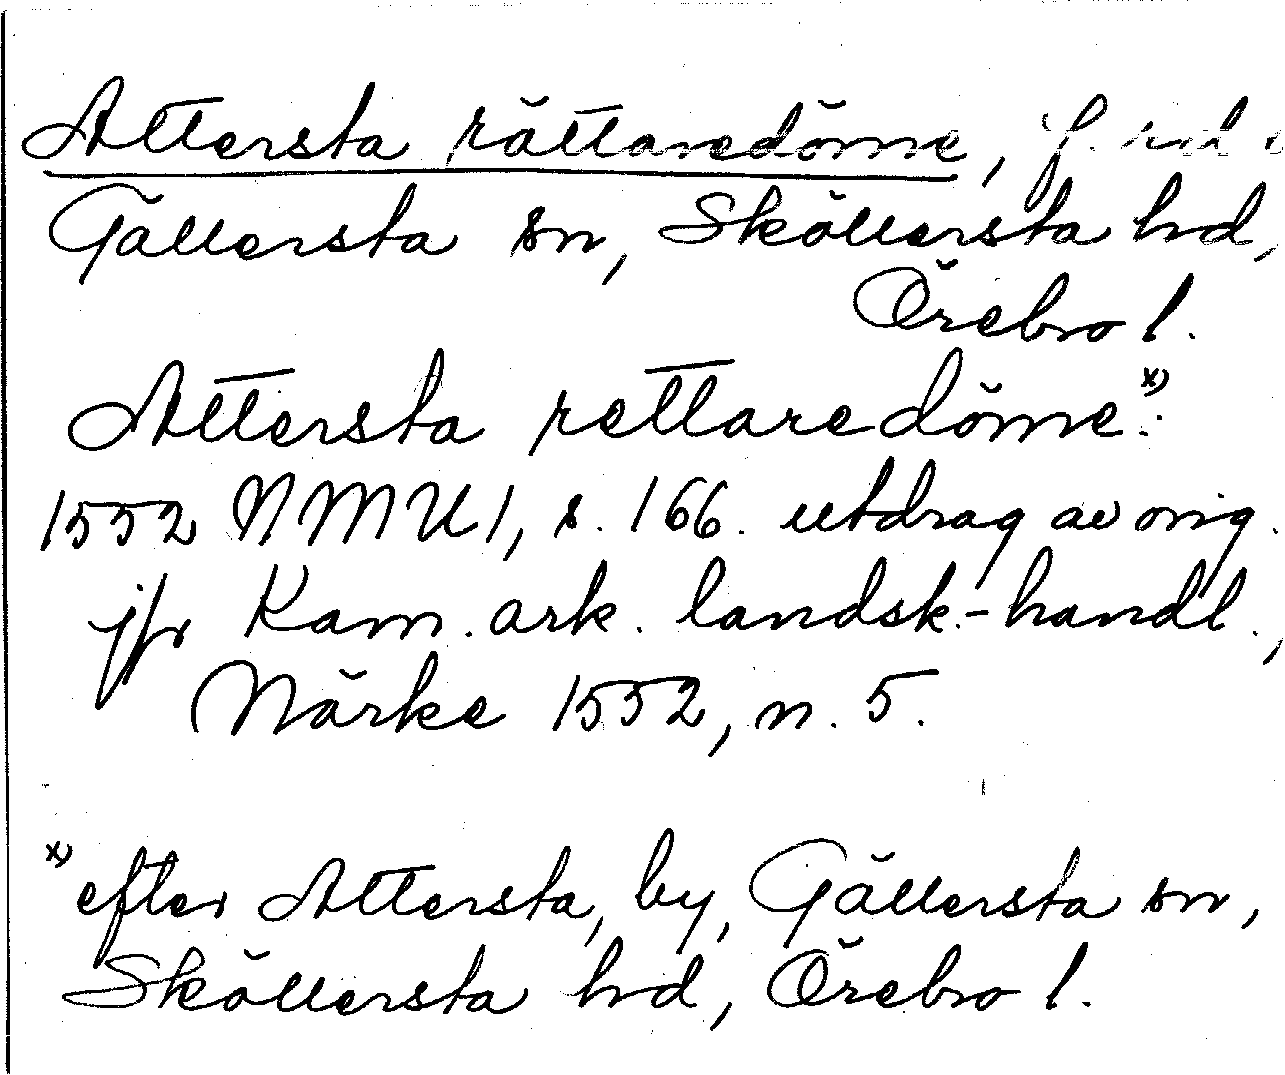 Attersta rättaredöme, f.
Gällersta sn, Sköllersta hd,
Örebro l.
Attersta rettaredöme x):
1552 NMU 1, s. 166. utdrag av orig.
jfr Kam. ark. landsk.-handl.,
Närke 1552, n. 5.
x) efter Attersta, by, Gällersta sn,
Sköllersta hd, Örebro l.